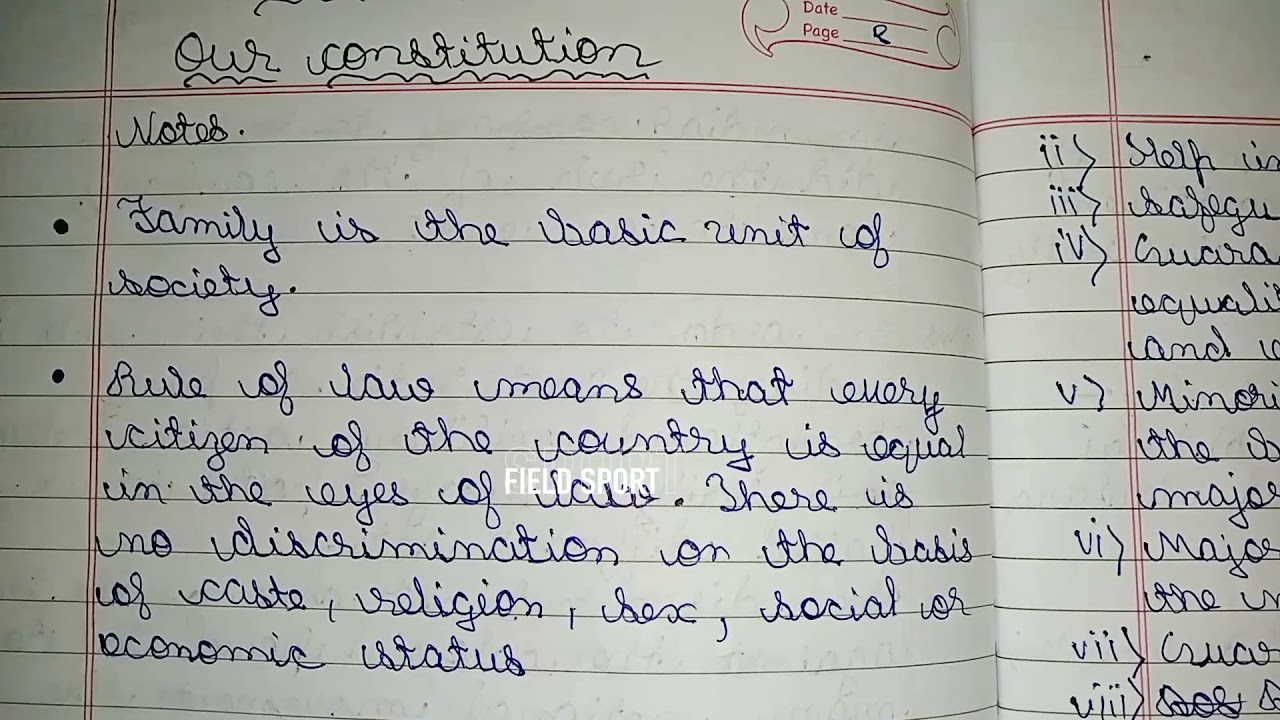 Date
Page 8
Our constitution
Notes.
• Family is the basic unit of
society.
• Rule of law means that every
citizen of the country is equal
in the eyes of law. There is
no discrimination on the basis
of caste, religion, sex, social or
economic status
FIELD SPORT
ii) Help in
iii) Safegu
iv) Guara
equali
and
v) Minori
the
major
vi) Major
the
vii) Guar
viii)